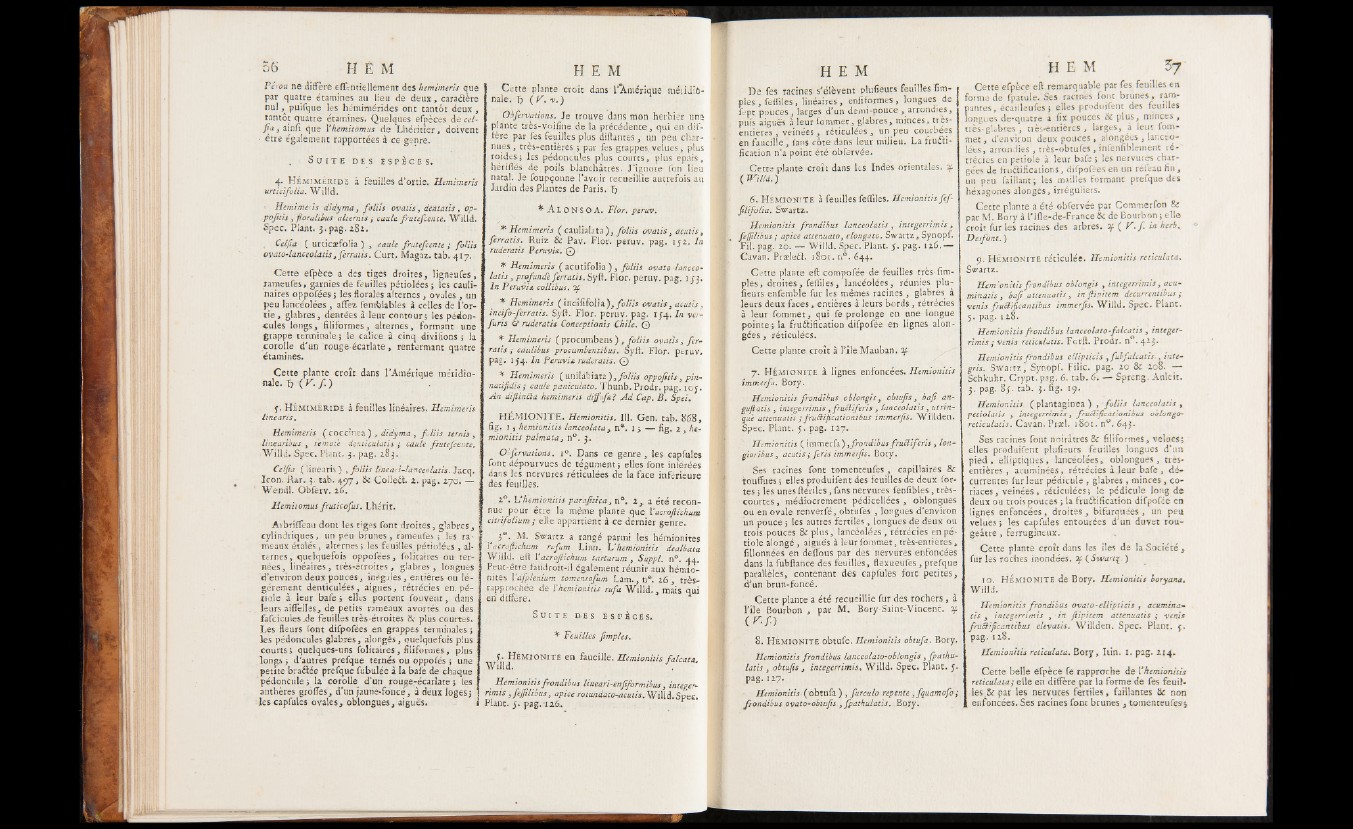 36 HEM
Pérou ne diffère essentiellement des hemimeris que
par quatre étamines au lieu de deux, caractère
nul, puisque les hémimérides ont tantôt deux,
tantôt quatre étamines. Quelques espèces de cel-
sia, ainsi que l'hemitomus de Lhéritier, doivent
être également rapportées à ce genre.
SUITE DES ESPÈCES.
4. HÉMIMÉRIDE à feuilles d'ortie. Hemimeris
urticifolia. Willd.
Hemimeris didyma, foliis ovatis, dentatis, op-
positis, floralibus alternis; caule frutescente. Willd.
Spec. Plant. 3. pag. 282.
Celsia (urticæfolia), caule frutescente; foliis
ovato-lanceolatis, serratis. Curt. Magaz. tab. 417.
Cette espèce a des tiges droites, ligneuses,
rameuses, garnies de feuilles pétiolées; les cauli-
naires opposées; les florales alternes, ovales, un
peu lancéolées, assez semblables à celles de l'or-
tie, glabres, dentées à leur contour; les pédon-
cules longs, filiformes, alternes, formant une
grappe terminale; le calice à cinq divisions; la
corolle d'un rouge-écarlate, renfermant quatre
étamines.
Cette plante croît dans l'Amérique méridio-
nale. ♄ (V. s.)
5. HÉMIMÉRIDE à feuilles linéaires. Hemimeris
linearis.
Hemimeris (coccinea), didyma, foliis ternis,
linearibus, remotè denticulatis; caule frutescente.
Willd. Spec. Plant. 3. pag. 283.
Celsia (linearis), foliis lineari-lanceolatis. Jacq.
Icon. Rar. 3. tab. 497, & Collect. 2. pag. 270. —
Wendl. Observ. 26.
Hemitomus fruticosus. Lhérit.
Arbrisseau dont les tiges sont droites, glabres,
cylindriques, un peu brunes, rameuses; les ra-
meaux étalés, alternes; les feuilles pétiolées, al-
ternes, quelquefois opposées, solitaires ou ter-
nées, linéaires, très-étroites, glabres, longues
d'environ deux pouces, inégales, entières ou lé-
gérement denticulées, aiguës, rétrécies en pé-
tiole à leur base; elles portent souvent, dans
leurs aisselles, de petits rameaux avortés ou des
fascicules de feuilles très-étroites & plus courtes.
Les fleurs sont disposées en grappes terminales;
les pédoncules glabres, alongés, quelquefois plus
courts; quelques-uns solitaires, filiformes, plus
longs; d'autres presque ternés ou opposés; une
petite bractée presque subulée à la base de chaque
pédoncule; la corolle d'un rouge-écarlate; les
anthères grosses, d'un jaune-foncé, à deux loges;
les capsules ovales, oblongues, aiguës.
HEM
Cette plante croît dans l'Amérique méridio-
nale. ♄ (V. v.)
Observations. Je trouve dans mon herbier une
plante très-voisine de la précédente, qui en dif-
fère par ses feuilles plus distantes, un peu char-
nues, très-entières; par ses grappes velues, plus
roides; les pédoncules plus courts, plus épais,
hérissés de poils blanchâtres. J'ignore son lieu
natal. Je soupçonne l'avoir recueillie autrefois au
Jardin des Plantes de Paris. ♄
* ALONSOA. Flor. peruv.
* Hemimeris (caulialata), foliis ovatis, acutis,
serratis. Ruiz & Pav. Flor. peruv. pag. 152. In
ruderatis Peruviæ. ⊙
* Hemimeris (acutifolia), foliis ovato-lanceo-
latis, profundè serratis. Syst. Flor. peruv. pag. 153.
In Peruviæ collibus. ♃
* Hemimeris (incisifolia), foliis ovatis, acutis,
inciso-serratis. Syst. Flor. peruv. pag. 154. In ver-
suris & ruderatis Conceptionis Chile. ⊙
* Hemimeris (procumbens), foliis ovatis, ser-
ratis; caulibus procumbentibus. Syst. Flor. peruv.
pag. 154. In Peruviæ ruderatis. ⊙
* Hemimeris (unilabiata), foliis oppositis, pin-
natifidis; caule paniculato. Thunb. Prodr. pag. 105.
An distincta hemimeris diffusa? Ad Cap. B. Spei.
HÉMIONITE. Hemionitis. Ill. Gen. tab. 868,
fig. 1, hemionitis lanceolata, n°. 13 — fig. 2, he-
mionitis palmata, n°. 3.
Observations. 1°. Dans ce genre, les capsules
sont dépourvues de tégument; elles sont insérées
dans les nervures réticulées de la face inférieure
des feuilles.
2°. L'hemionitis parasitica, n°. 2, a été recon-
nue pour être la même plante que l'acrostichum
citrifolium; elle appartient à ce dernier genre.
3°. M. Swartz a rangé parmi les hémionites
l'acrostichum rufum Linn. L'hemionitis dealbata
Willd. est l'acrostichum tartareum, Suppl. n°. 44.
Peut-être faudroit-il également réunir aux hémio-
nites l'asplenium tomentosum Lam., n°. 26, très-
rapprochée de l'hemionitis rufa Willd., mais qui
en diffère.
SUITE DES ESPÈCES.
* Feuilles simples.
5. HÉMIONITE en faucille. Hemionitis falcata.
Willd.
Hemionitis frondibus lineari-ensiformibus, integer-
rimis, sessilibus, apice rotundato-acutis. Willd. Spec.
Plant. 5. pag. 126.
HEM
De ses racines s'élèvent plusieurs feuilles sim-
ples, sessiles, linéaires, ensiformes, longues de
sept pouces, larges d'un demi-pouce, arrondies,
puis aiguës à leur sommet, glabres, minces, très-
entières, veinées, réticulées, un peu courbées
en faucille, sans côte dans leur milieu. La fructi-
fication n'a point été observée.
Cette plante croît dans les Indes orientales. ♃
(Willd.)
6. HÉMIONITE à feuilles sessiles. Hemionitis ses-
silifolia. Swartz.
Hemionitis frondibus lanceolatis, integerrimis,
sessilibus; apice attenuato, elongato. Swartz, Synops.
Fil. pag. 20. — Willd. Spec. Plant. 5. pag. 126. —
Cavan. Prælect. 1801. n°. 644.
Cette plante est composée de feuilles très-sim-
ples, droites, sessiles, lancéolées, réunies plu-
sieurs ensemble sur les mêmes racines, glabres à
leurs deux faces, entières à leurs bords, rétrécies
à leur sommet, qui se prolonge en une longue
pointe; la fructification disposée en lignes alon-
gées, réticulées.
Cette plante croît à l'île Mauban. ♃
7. HÉMIONITE à lignes enfoncées. Hemionitis
immersa. Bory.
Hemionitis frondibus oblongis, obtusis, basi an-
gustatis, integerrimis, fructiferis, lanceolatis, utrin-
que attenuatis; fructificationibus immersis. Willden.
Spec. Plant. 5. pag. 127.
Hemionitis (immersa), frondibus fructiferis, lon-
gioribus, acutis; feris immersis. Bory.
Ses racines sont tomenteuses, capillaires &
touffues; elles produisent des feuilles de deux for-
tes; les unes stériles, sans nervures sensibles, très-
courtes, médiocrement pédicellées, oblongues
ou en ovale renversé, obtuses, longues d'environ
un pouce; les autres fertiles, longues de deux ou
trois pouces & plus, lancéolées, rétrécies en pé-
tiole alongé, aiguës à leur sommet, très-entières,
sillonnées en dessous par des nervures enfoncées
dans la substance des feuilles, flexueuses, presque
parallèles, contenant des capsules fort petites,
d'un brun-foncé.
Cette plante a été recueillie sur des rochers, à
l'île Bourbon, par M. Bory Saint-Vincent. ♃
(V. s.)
8. HÉMIONITE obtuse. Hemionitis obtusa. Bory.
Hemionitis frondibus lanceolato-oblongis, spathu-
latis, obtusis, integerrimis. Willd. Spec. Plant. 5.
pag. 127.
Hemionitis (obtusa), surculo repente, squamoso;
frondibus ovato-obtusis, spathulatis. Bory.
HEM 37
Cette espèce est remarquable par ses feuilles en
forme de spatule. Ses racines sont brunes, ram-
pantes, écailleuses; elles produisent des feuilles
longues de quatre à six pouces & plus, minces,
très-glabres, très-entières, larges, à leur som-
met, d'environ deux pouces, alongées, lancéo-
lées, arrondies, très-obtuses, insensiblement ré-
trécies en pétiole à leur base; les nervures char-
gées de fructifications, disposées en un réseau fin,
un peu saillant; les mailles formant presque des
héxagones alongés, irréguliers.
Cette plante a été observée par Commerson &
par M. Bory à l'Isle-de-France & de Bourbon; elle
croît sur les racines des arbres. ♃ (V. s. in herb.
Desfont.)
9. HÉMIONITE réticulée. Hemionitis reticulata.
Swartz.
Hemionitis frondibus oblongis, integerrimis, acu-
minatis, basi attenuatis, in stipitem decurrentibus;
venis fructificantibus immersis. Willd. Spec. Plant.
5. pag. 128.
Hemionitis frondibus lanceolato-falcatis, integer-
rimis; venis reticulatis. Forst. Prodr. n°. 423.
Hemionitis frondibus ellipticis, subfalcatis, inte-
gris. Swartz, Synops. Filic. pag. 20 & 208. —
Schkuhr. Crypt. pag. 6. tab. 6. — Spreng. Anleit.
3. pag. 85. tab. 3. fig. 19.
Hemionitis (plantaginea), foliis lanceolatis,
petiolatis, integerrimis, fructificationibus oblongo-
reticulatis. Cavan. Præl. 1801. n°. 643.
Ses racines sont noirâtres & filiformes, velues;
elles produisent plusieurs feuilles longues d'un
pied, elliptiques, lancéolées, oblongues, très-
entières, acuminées, rétrécies à leur base, dé-
currentes sur leur pédicule, glabres, minces, co-
riaces, veinées, réticulées; le pédicule long de
deux ou trois pouces; la fructification disposée en
lignes enfoncées, droites, bifurquées, un peu
velues; les capsules entourées d'un duvet rou-
geâtre, ferrugineux.
Cette plante croît dans les îles de la Société,
sur les roches inondées. ♃ (Swartz.)
10. HÉMIONITE de Bory. Hemionitis boryana.
Willd.
Hemionitis frondibus ovato-ellipticis, acumina-
tis, integerrimis, in stipitem attenuatis; venis
fructificantibus elevatis. Willden. Spec. Plant. 5.
pag. 128.
Hemionitis reticulata. Bory, Itin. 1. pag. 214.
Cette belle espèce se rapproche de l'hemionitis
reticulata; elle en diffère par la forme de ses feuil-
les & par les nervures fertiles, saillantes & non
enfoncées. Ses racines sont brunes, tomenteuses;